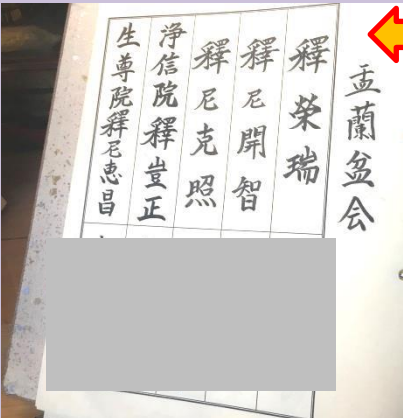 盂蘭盆会
釋榮瑞
釋尼開智
釋尼克照
浄信院釋豈正
生尊院釋尼恵昌